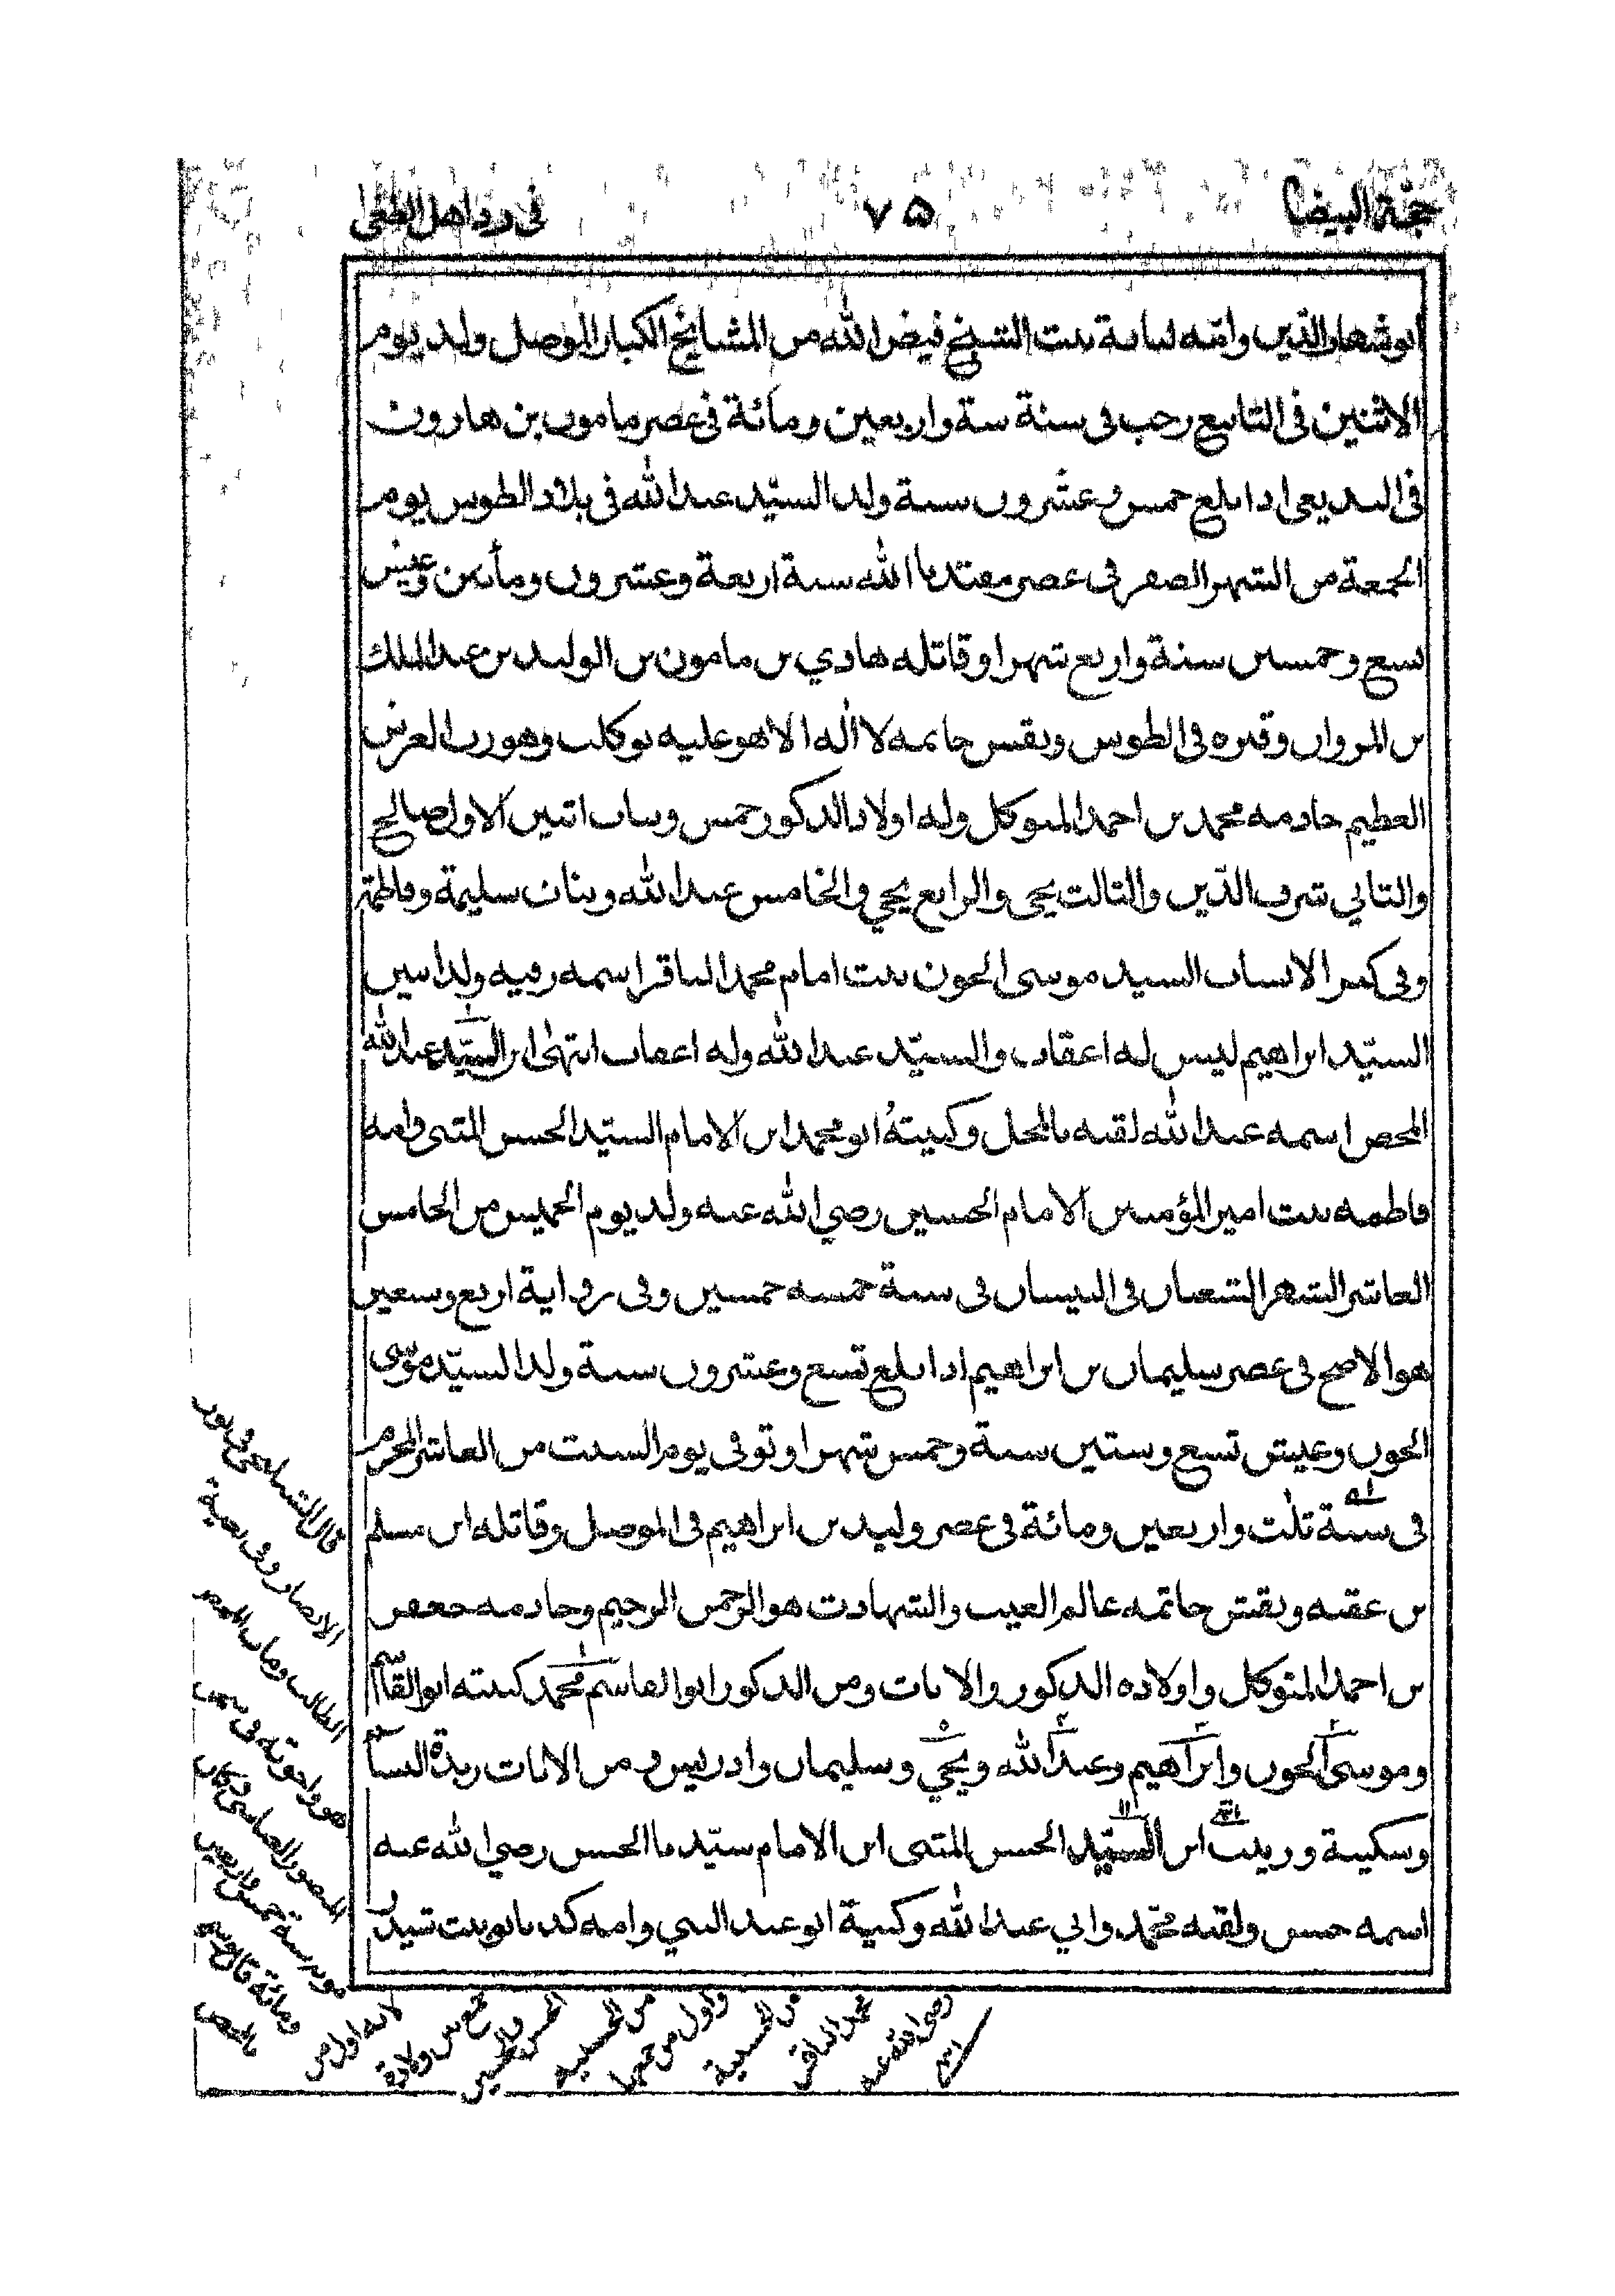 حجة البيضا ٧٥ في رد اهل الطغى
ابو شهاب الدين وامه لبابة بنت الشيخ فيض الله من المشايخ الكبار الموصل ولد يوم
الاثنين في التاسع رجب في سنة ستة واربعين ومائة في عصر مامون بن هارون
في البديعي اذا بلغ خمس وعشرون سنة ولد السيد عبد الله في بلاد الطوس يوم
الجمعة من الشهر الصفر في عصر مقتدبا الله سنة اربعة وعشرون ومأتين وعيش
تسع وخمسين سنة واربع شهرا وقاتله هادي بن مامون بن الوليد بن عبد الملك
بن المروان وقبره في الطوس ونقس خاتمه لا اله الا هو عليه توكلت وهو رب العرش
العظيم خادمه محمد بن احمد المتوكل وله اولاد الذكور خمس وبنات اثنين الاول صالح
والثاني شرف الدين والثالث يحيى والرابع يحيي والخامس عبد الله وبنات سليمة وفاطمة
وفي الانساب السيد موسى الجون بنت امام محمد الباقر اسمه رقيه ولد اسين
السيد ابراهيم ليس له اعقاب والسيد عبد الله وله اعقاب انتهى ابن السيد عبد الله
المحض اسمه عبد الله لقبه بالمحل وكنيته ابو محمد ابن الامام السيد الحسن المثنى وامه
فاطمه بنت امير المؤمنين الامام الحسين رضي الله عنه ولد يوم الخميس من الخامس
العاشر الشهر الشعبان في النيسان في سنة خمسه خمسين وفي رواية اربع وسبعين
هو الاصح في عصر سليمان بن ابراهيم اذا بلغ تسع وعشرون سنة ولد السيد موسى
الجون وعيش تسع وستين سنة وخمس شهرا وتوفى يوم السبت من العاشر المحرم
في سنة ثلث واربعين ومائة في عصر وليد بن ابراهيم في الموصل وقاتله ابن مسلم
بن عقبه ونقش خاتمه عالم الغيب والشهادت هو الرحمن الرحيم وخادمه جعفر
بن احمد المتوكل واولاده الذكور والاناث ومن الذكور ابو القاسم محمد كنيته ابو القاسم
وموسى الجون وابراهيم وعبد الله ويحيي وسليمان وادريس ومن الاناث زبدة النسا
وسكينة وزينب ابن السيد الحسن المثنى ابن الامام سيدنا الحسن رضي الله عنه
اسمه حسن ولقبه محمد وابي عبد الله وكنية ابو عبد النبي وامه بنت
قال الشبلنجي في نور
الابصار وفي بغية
الطالب ومات المحض
هو واخوته في سجن
المنصور العباسي وكان
موته سنة خمس واربعين
ومائة
بالمحض
لانه اول من
جمع بين ولادة
الحسن والحسين
من الحسنيه
واول من جمعها
من الحسينية
محمد الباقر
رضي الله عنه